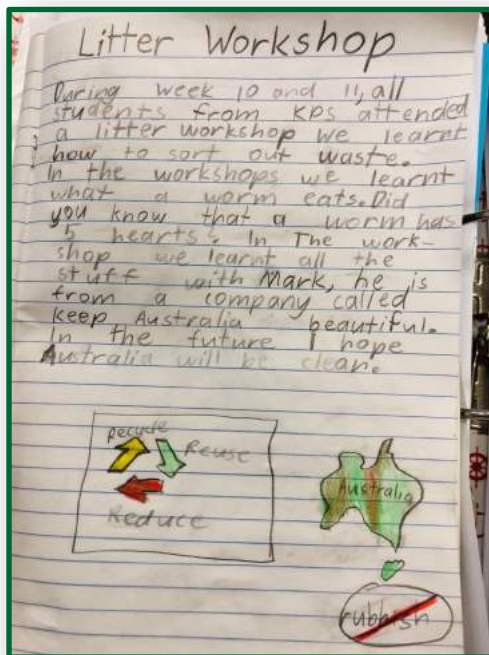 Litter Workshop
During week 10 and 11, all
students from KPS attended
a litter workshop we learnt
how to sort out waste.
In the workshops we learnt
what a worm eats. Did
you know that a worm has
5 hearts? In The work-
shop we learnt all the
stuff with Mark, he is
from a company called
keep Australia beautiful.
In the future I hope
Australia will be clean.
Recycle
Reuse
Reduce
Australia
rubbish